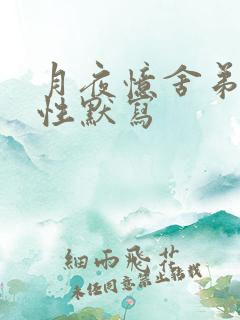 月夜憶舍弟
性默寫
細雨飛花
未经同意禁止轉載